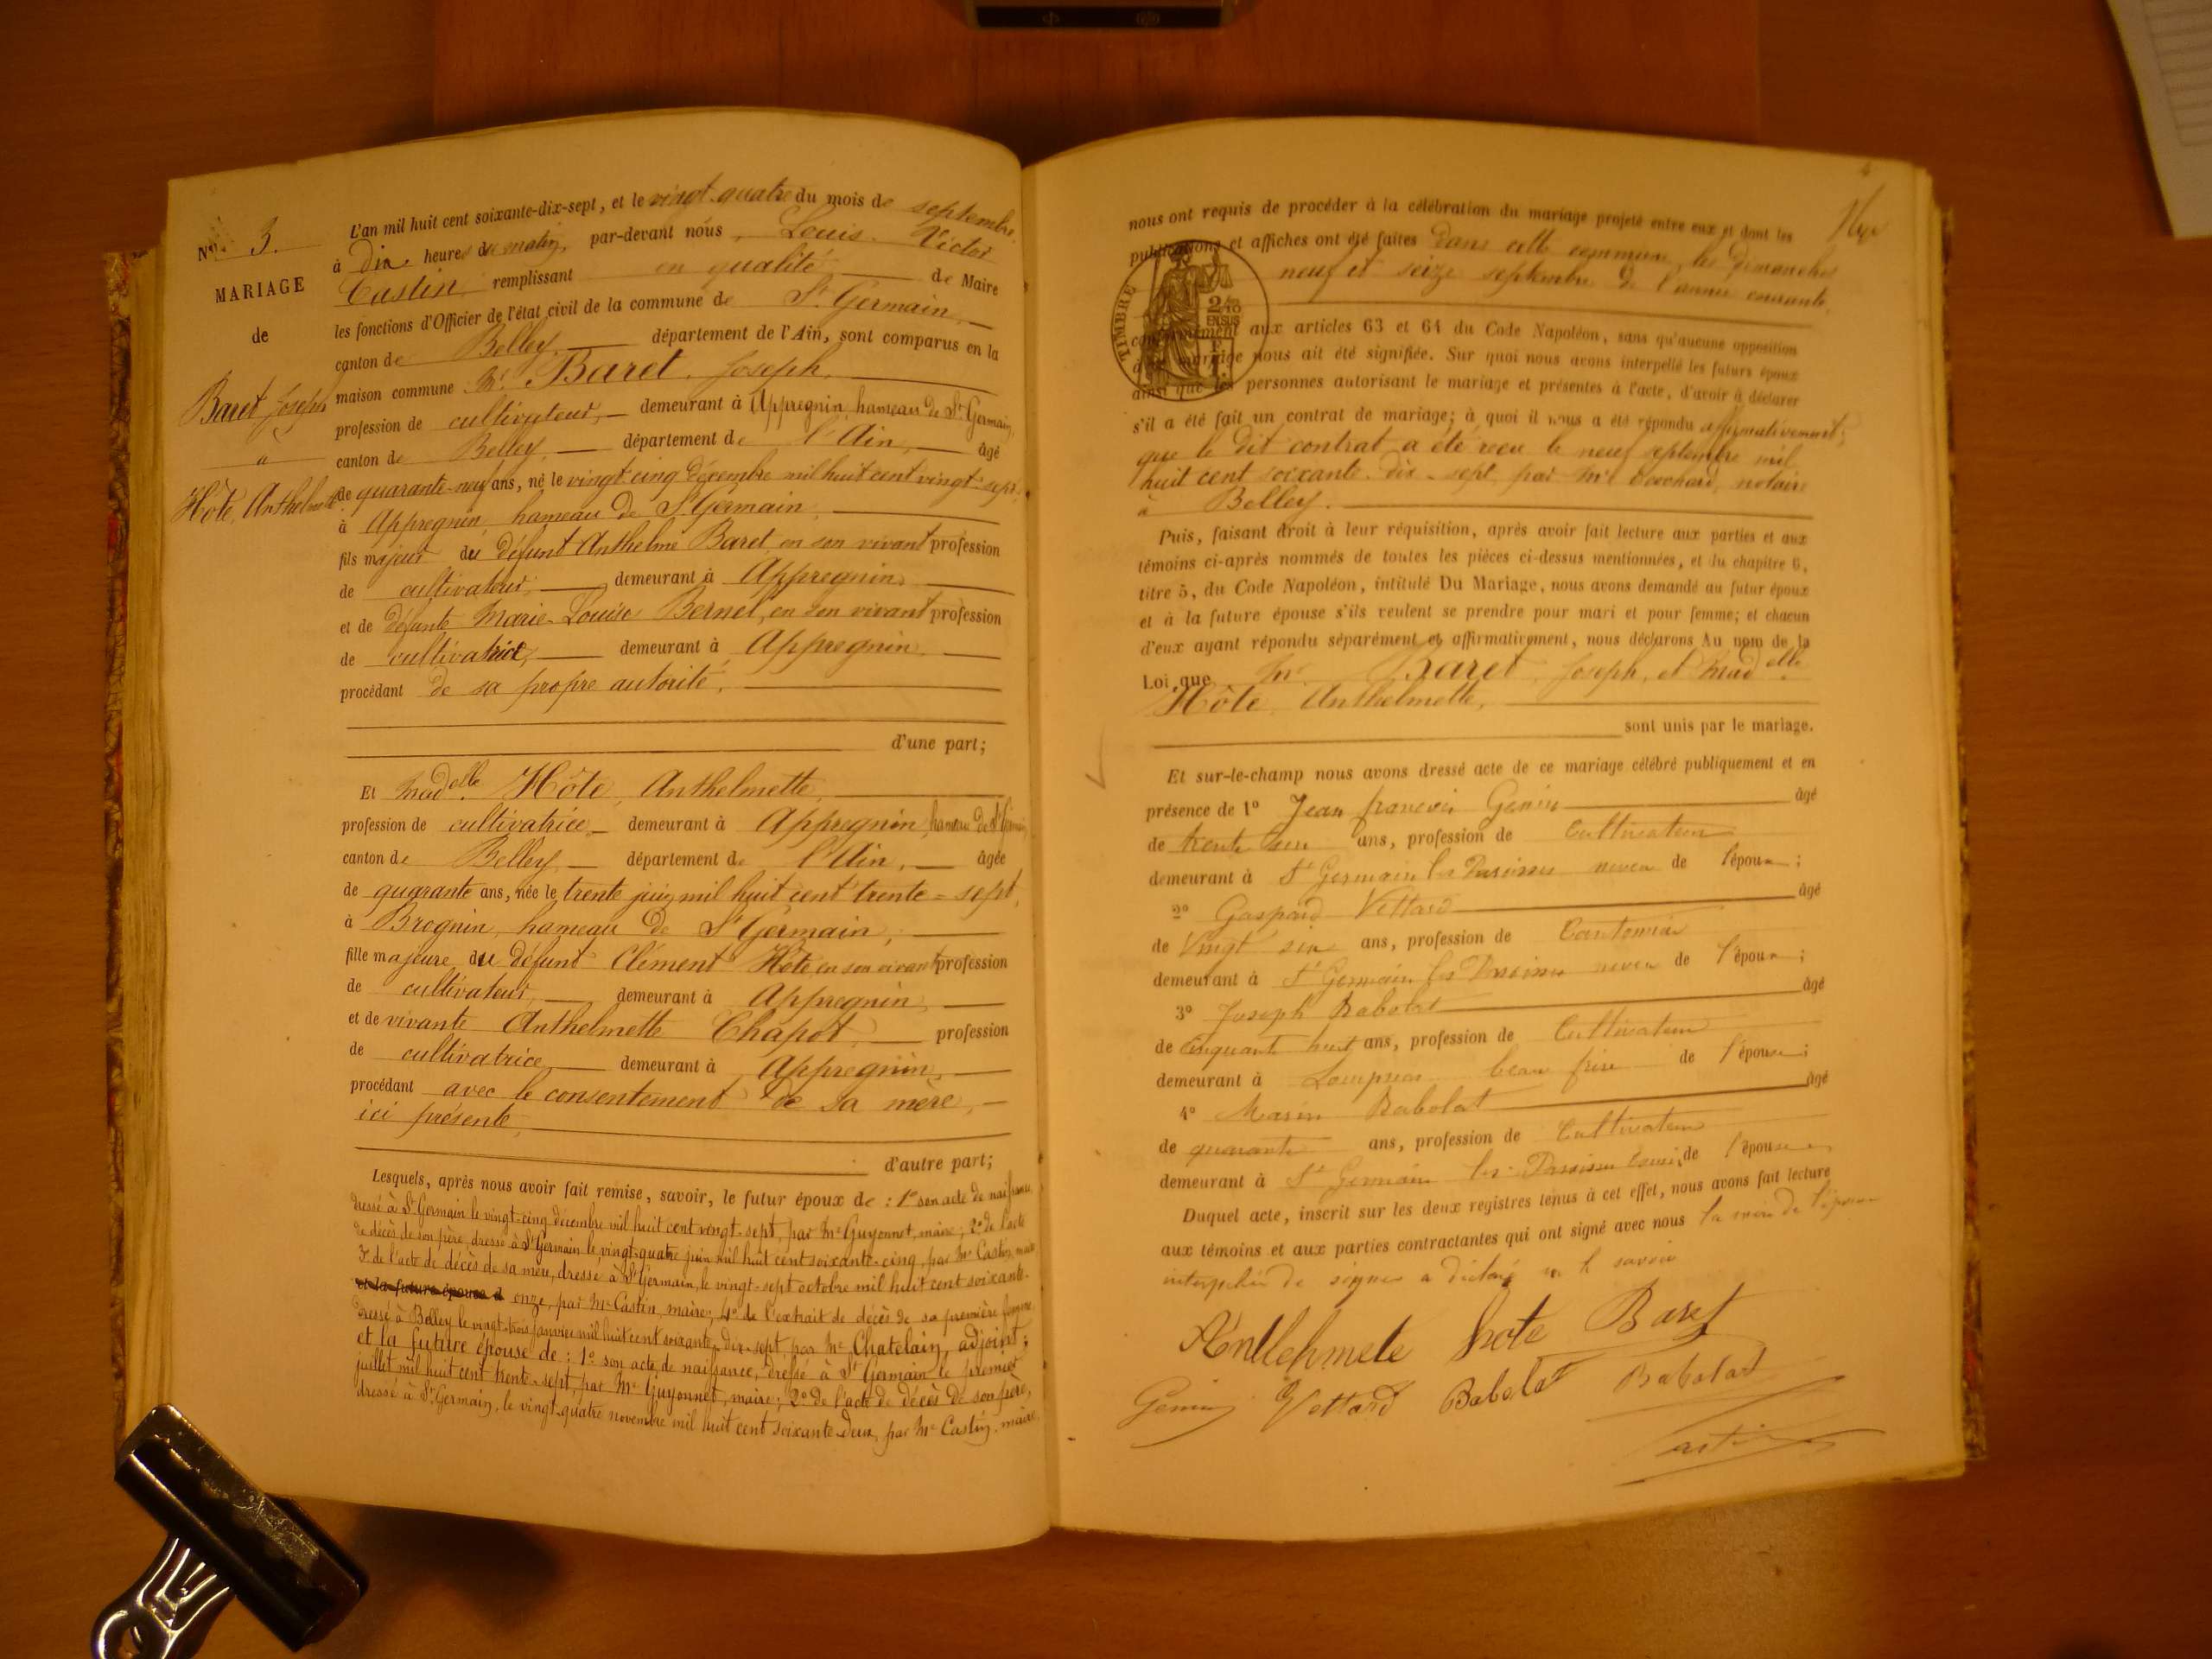 N° 3.
MARIAGE
de
Baret Joseph
à
Hôte, Anthelmette
L'an mil huit cent soixante-dix-sept, et le vingt-quatre du mois de septembre,
à dix heures du matin, par-devant nous, Louis-Victor
Castin, remplissant en qualité de Maire
les fonctions d'Officier de l'état civil de la commune de St Germain,
canton de Belley, département de l'Ain, sont comparus en la
maison commune Mr. Baret, Joseph,
profession de cultivateur, demeurant à Appregnin, hameau de St Germain,
canton de Belley, département de l'Ain, âgé
de quarante-neuf ans, né le vingt cinq décembre mil huit cent vingt-sept,
à Appregnin, hameau de St Germain,
fils majeur du défunt Anthelme Baret, en son vivant profession
de cultivateur, demeurant à Appregnin,
et de défunte Marie-Louise Bernet, en son vivant profession
de cultivatrice, demeurant à Appregnin,
procédant de sa propre autorité,
d'une part;
Et Madelle Hôte, Anthelmette,
profession de cultivatrice demeurant à Appregnin, hameau de St Germain,
canton de Belley, département de l'Ain, âgée
de quarante ans, née le trente juin mil huit cent trente-sept,
à Brognin, hameau de St Germain,
fille majeure du défunt Clément Hôte en son vivant profession
de cultivateur, demeurant à Appregnin,
et de vivante Anthelmette Chapot, profession
de cultivatrice demeurant à Appregnin,
procédant avec le consentement de sa mère,
ici présente,
d'autre part;
Lesquels, après nous avoir fait remise, savoir, le futur époux de : 1° son acte de naissance
dressé à St Germain le vingt-cinq décembre mil huit cent vingt-sept, par Me Guyonnet, maire; 2° de l'acte
de décès de son père, dressé à St Germain le vingt-quatre juin mil huit cent soixante-cinq, par Me Castin, maire
3° de l'acte de décès de sa mère, dressé à St Germain, le vingt-sept octobre mil huit cent soixante-
et la future épouse d onze, par Me Castin, maire; 4° de l'extrait de décès de sa première femme,
dressé à Belley le vingt-trois janvier mil huit cent soixante-dix-sept, par Me Chatelain, adjoint;
et la future épouse de : 1° son acte de naissance, dressé à St Germain le premier
juillet mil huit cent trente-sept, par Me Guyonnet, maire; 2° de l'acte de décès de son père,
dressé à St Germain, le vingt-quatre novembre mil huit cent soixante-deux, par Me Castin, maire,
nous ont requis de procéder à la célébration du mariage projeté entre eux et dont les
publications et affiches ont été faites dans cette commune, les dimanches
neuf et seize septembre de l'année courante,
TIMBRE
2/10
EN SUS
conformément aux articles 63 et 64 du Code Napoléon, sans qu'aucune opposition
à ce mariage nous ait été signifiée. Sur quoi nous avons interpellé les futurs époux
ainsi que les personnes autorisant le mariage et présentes à l'acte, d'avoir à déclarer
s'il a été fait un contrat de mariage; à quoi il nous a été répondu affirmativement;
que le dit contrat a été reçu le neuf septembre mil
huit cent soixante-dix-sept, par Me notaire
à Belley.
Puis, faisant droit à leur réquisition, après avoir fait lecture aux parties et aux
témoins ci-après nommés de toutes les pièces ci-dessus mentionnées, et du chapitre 6,
titre 5, du Code Napoléon, intitulé Du Mariage, nous avons demandé au futur époux
et à la future épouse s'ils veulent se prendre pour mari et pour femme; et chacun
d'eux ayant répondu séparément et affirmativement, nous déclarons Au nom de la
Loi que Mr. Baret, Joseph, et Madelle
Hôte, Anthelmette,
sont unis par le mariage.
Et sur-le-champ nous avons dressé acte de ce mariage célébré publiquement et en
présence de 1° Jean françois Genin âgé
de trente ans, profession de Cultivateur
demeurant à St Germain les Paroisses neveu de l'époux;
2° Gaspard Vettard âgé
de Vingt six ans, profession de Cantonnier
demeurant à St Germain les Paroisses neveu de l'époux;
3° Joseph Rabolat âgé
de Cinquante huit ans, profession de Cultivateur
demeurant à beau frère de l'épouse;
4° Marin Babolat âgé
de quarante ans, profession de Cultivateur
demeurant à St Germain les Paroisses de l'épouse
Duquel acte, inscrit sur les deux registres tenus à cet effet, nous avons fait lecture
aux témoins et aux parties contractantes qui ont signé avec nous la mère de l'épouse
interpellée de signer a déclaré ne le savoir
Anllehmete hote Baret
Genin Vettard Babolat Babolat
Castin